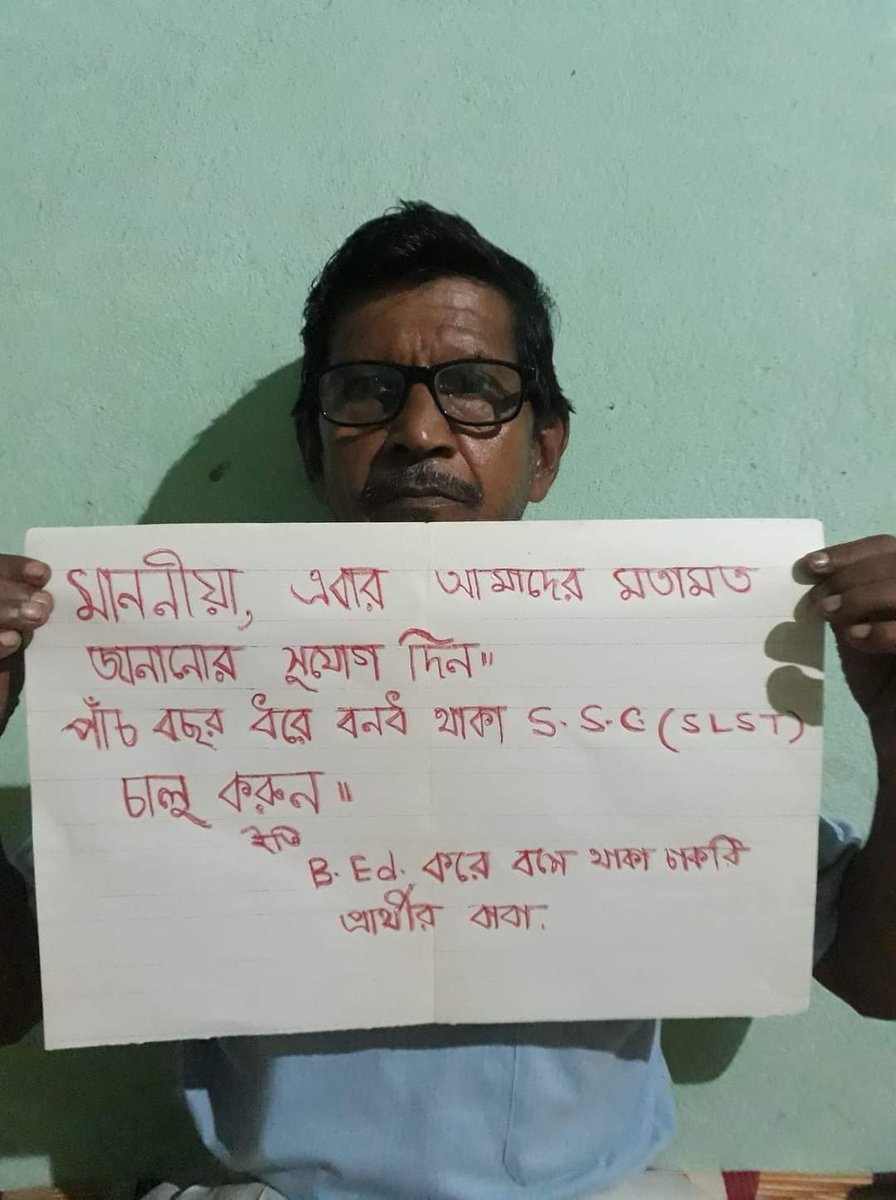 মাননীয়া, এবার আমাদের মতামত
জানানোর সুযোগ দিন॥
পাঁচ বছর ধরে বনধ থাকা S.S.C. (SLST)
চালু করুন॥
ইতি
B.Ed. করে বসে থাকা চাকরি
প্রার্থীর বাবা.